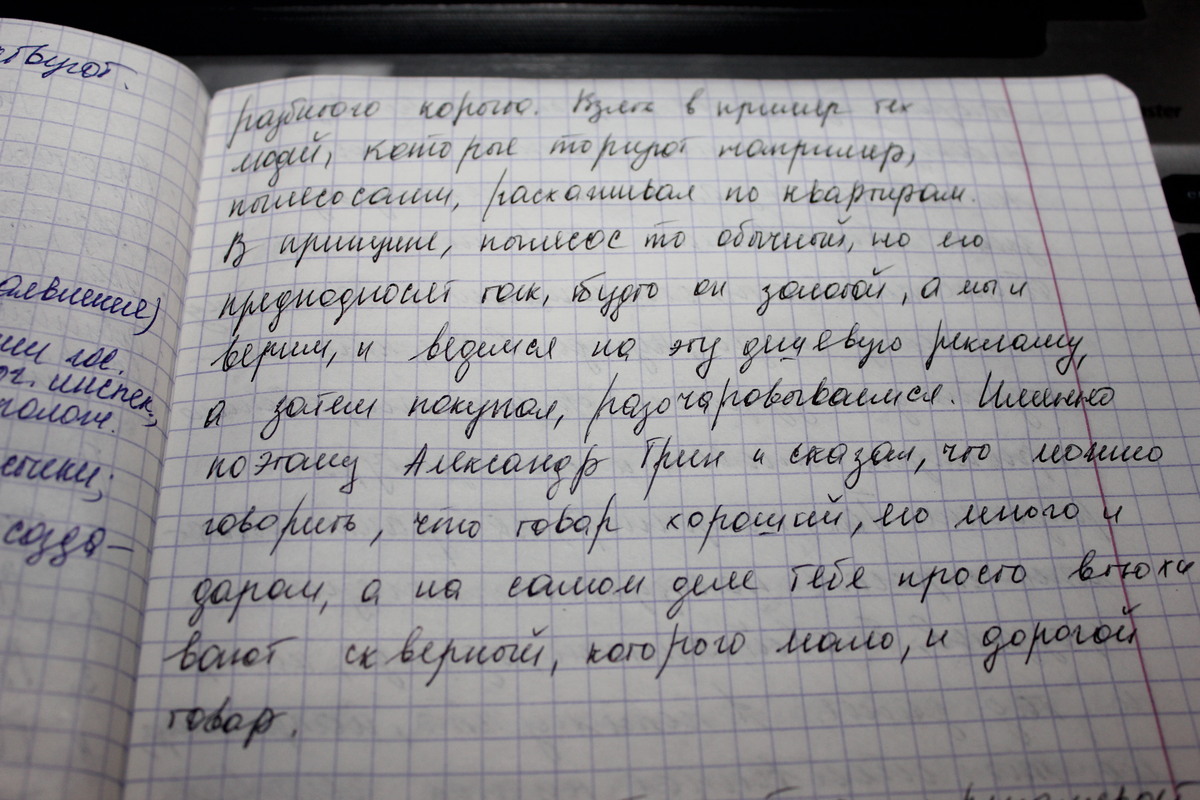 ствуют.
разбитого корыта. Взять в пример тех
людей, которые торгуют например,
пылесосами, расхаживая по квартирам.
В принципе, пылесос то обычный, но его
преподносят так, будто он золотой, а мы и
верим, и ведемся на эту дешевую рекламу,
а затем покупая, разочаровываемся. Именно
поэтому Александр Грин и сказал, что можно
говорить, что товар хороший, его много и
даром, а на самом деле тебе просто втюхи
вают скверный, которого мало, и дорогой
товар.
авление)
гос.
инспек.,
созда-